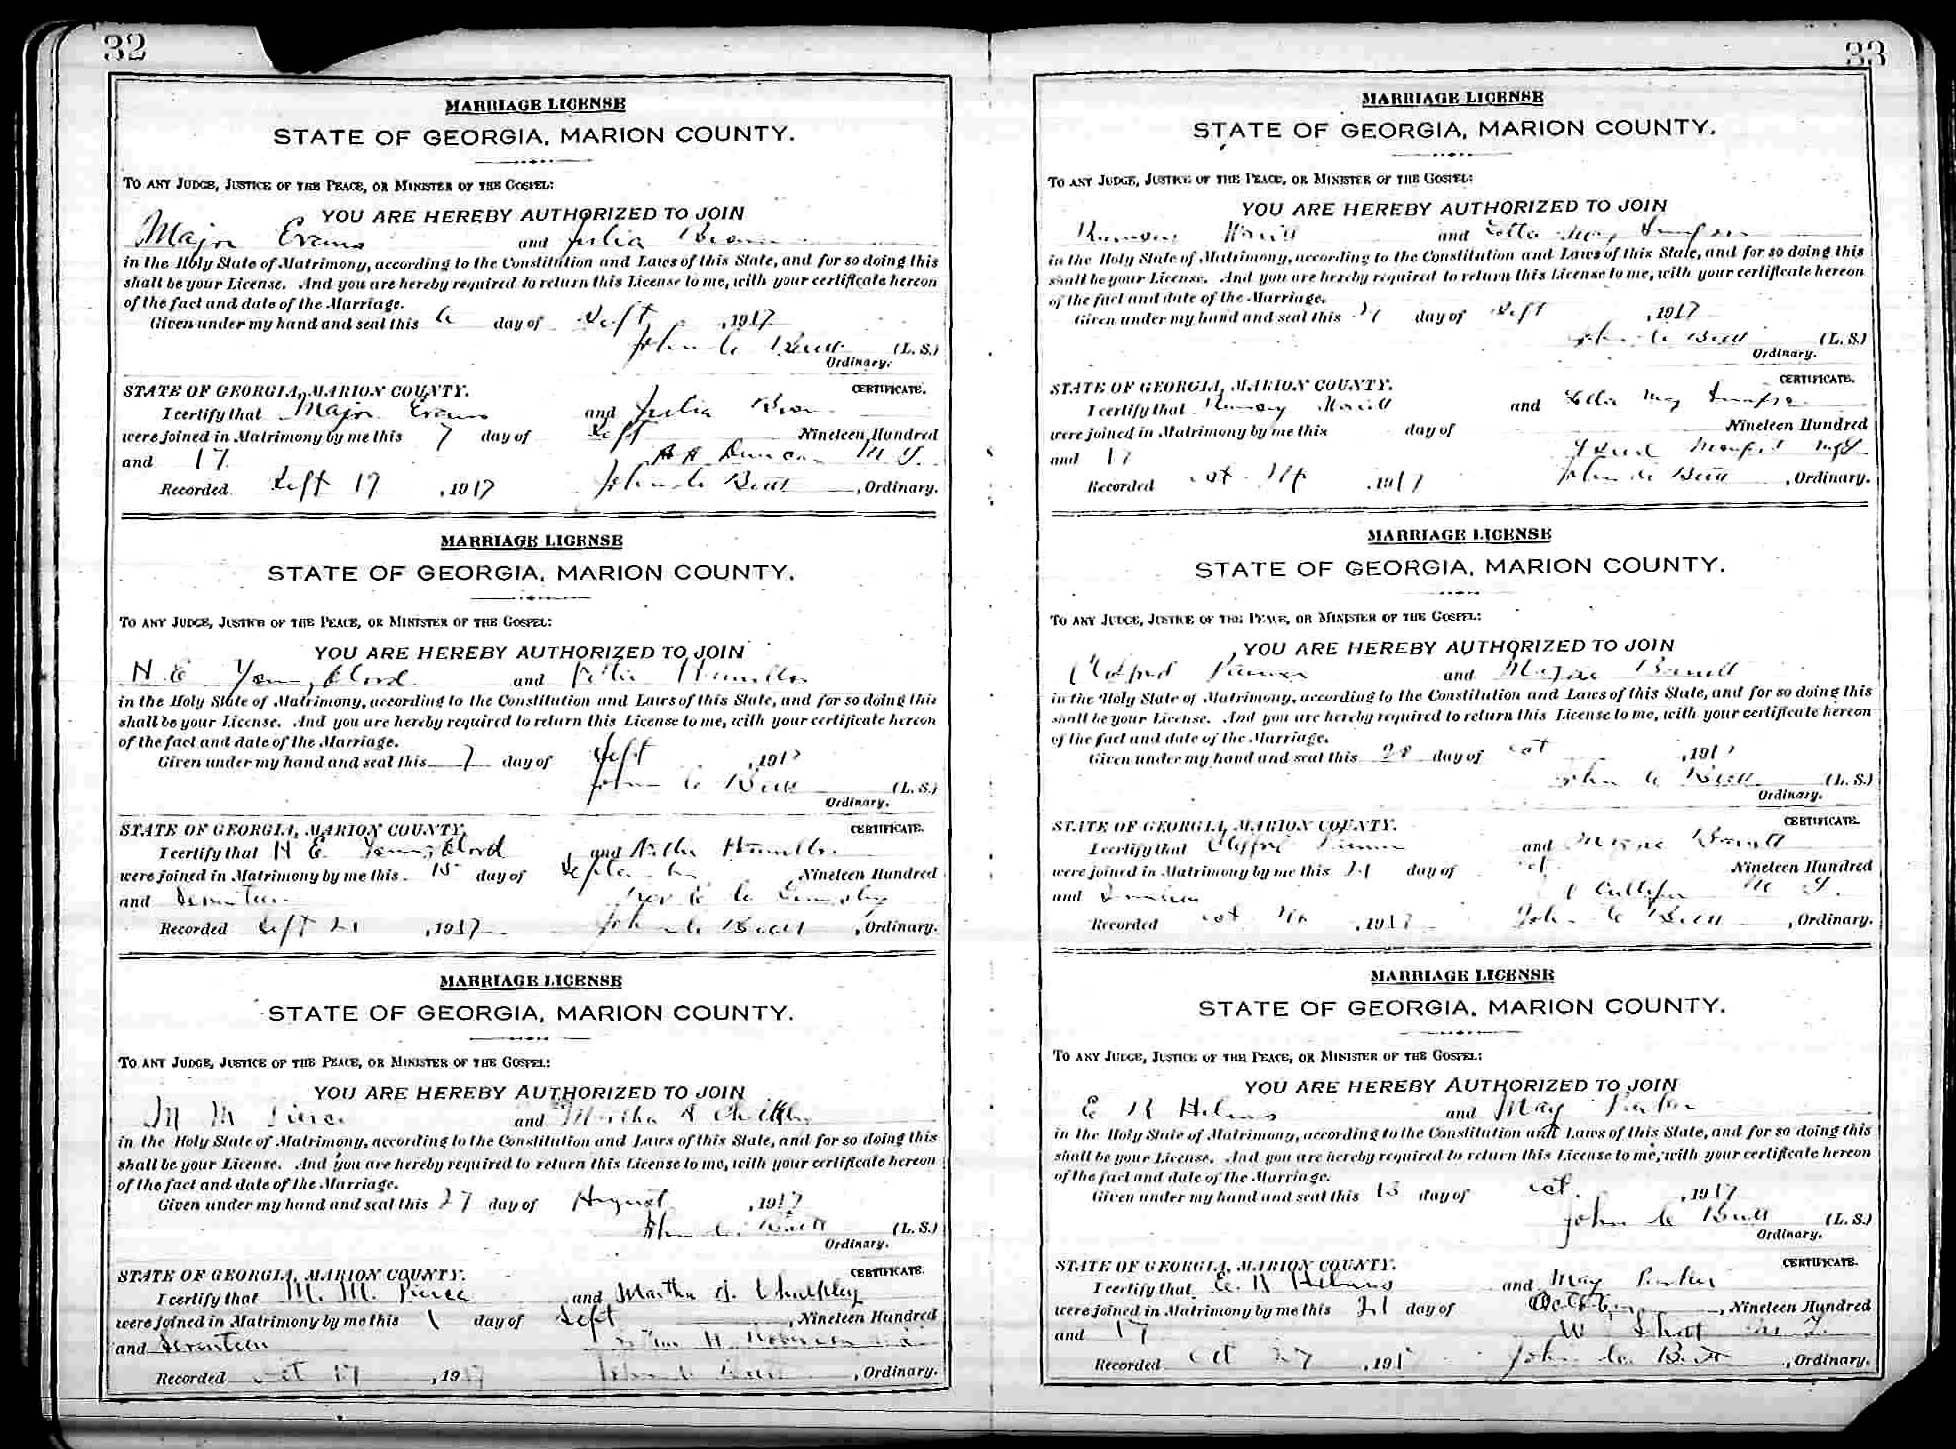 32
MARRIAGE LICENSE
STATE OF GEORGIA, MARION COUNTY.
TO ANY JUDGE, JUSTICE OF THE PEACE, OR MINISTER OF THE GOSPEL:
YOU ARE HEREBY AUTHORIZED TO JOIN
Major Evans and Julia Brown
in the Holy State of Matrimony, according to the Constitution and Laws of this State, and for so doing this
shall be your License. And you are hereby required to return this License to me, with your certificate hereon
of the fact and date of the Marriage.
Given under my hand and seal this 6 day of Sept, 1917
John C Butt (L. S.)
Ordinary.
STATE OF GEORGIA, MARION COUNTY. CERTIFICATE.
I certify that Major Evans and Julia Brown
were joined in Matrimony by me this 7 day of Sept Nineteen Hundred
and 17. Duncan
Recorded Sept 17, 1917 John C Butt, Ordinary.
MARRIAGE LICENSE
STATE OF GEORGIA, MARION COUNTY.
TO ANY JUDGE, JUSTICE OF THE PEACE, OR MINISTER OF THE GOSPEL:
YOU ARE HEREBY AUTHORIZED TO JOIN
H. E Youngblood and
in the Holy State of Matrimony, according to the Constitution and Laws of this State, and for so doing this
shall be your License. And you are hereby required to return this License to me, with your certificate hereon
of the fact and date of the Marriage.
Given under my hand and seal this 7 day of Sept, 1917
John C Butt (L. S.)
Ordinary.
STATE OF GEORGIA, MARION COUNTY. CERTIFICATE.
I certify that H E Youngblood and
were joined in Matrimony by me this 15 day of September, Nineteen Hundred
and Seventeen Rev
Recorded Sept 21, 1917 John C Butt, Ordinary.
MARRIAGE LICENSE
STATE OF GEORGIA, MARION COUNTY.
TO ANY JUDGE, JUSTICE OF THE PEACE, OR MINISTER OF THE GOSPEL:
YOU ARE HEREBY AUTHORIZED TO JOIN
M M Pierce and Martha
in the Holy State of Matrimony, according to the Constitution and Laws of this State, and for so doing this
shall be your License. And you are hereby required to return this License to me, with your certificate hereon
of the fact and date of the Marriage.
Given under my hand and seal this 27 day of August, 1917
John C. Butt (L. S.)
Ordinary.
STATE OF GEORGIA, MARION COUNTY. CERTIFICATE.
I certify that M. M. Pierce and Martha J. Chalkley
were joined in Matrimony by me this 1 day of Sept, Nineteen Hundred
and Seventeen
Recorded Oct 17, 1917 John C Butt, Ordinary.
33
MARRIAGE LICENSE
STATE OF GEORGIA, MARION COUNTY.
TO ANY JUDGE, JUSTICE OF THE PEACE, OR MINISTER OF THE GOSPEL:
YOU ARE HEREBY AUTHORIZED TO JOIN
and May
in the Holy State of Matrimony, according to the Constitution and Laws of this State, and for so doing this
shall be your License. And you are hereby required to return this License to me, with your certificate hereon
of the fact and date of the Marriage.
Given under my hand and seal this day of Sept, 1917
John C Butt (L. S.)
Ordinary.
STATE OF GEORGIA, MARION COUNTY. CERTIFICATE.
I certify that and May
were joined in Matrimony by me this day of Nineteen Hundred
and 17
Recorded Oct, 1917 John C Butt, Ordinary.
MARRIAGE LICENSE
STATE OF GEORGIA, MARION COUNTY.
TO ANY JUDGE, JUSTICE OF THE PEACE, OR MINISTER OF THE GOSPEL:
YOU ARE HEREBY AUTHORIZED TO JOIN
Clifford and
in the Holy State of Matrimony, according to the Constitution and Laws of this State, and for so doing this
shall be your License. And you are hereby required to return this License to me, with your certificate hereon
of the fact and date of the Marriage.
Given under my hand and seal this 20 day of Oct, 191
John C Butt (L. S.)
Ordinary.
STATE OF GEORGIA, MARION COUNTY. CERTIFICATE.
I certify that Clifford and
were joined in Matrimony by me this 21 day of Oct Nineteen Hundred
and
Recorded Oct, 1917 John C Butt, Ordinary.
MARRIAGE LICENSE
STATE OF GEORGIA, MARION COUNTY.
TO ANY JUDGE, JUSTICE OF THE PEACE, OR MINISTER OF THE GOSPEL:
YOU ARE HEREBY AUTHORIZED TO JOIN
E R Helms and May Parker
in the Holy State of Matrimony, according to the Constitution and Laws of this State, and for so doing this
shall be your License. And you are hereby required to return this License to me, with your certificate hereon
of the fact and date of the Marriage.
Given under my hand and seal this 13 day of Oct., 1917
John C Butt (L. S.)
Ordinary.
STATE OF GEORGIA, MARION COUNTY. CERTIFICATE.
I certify that E. R Helms and May Parker
were joined in Matrimony by me this 21 day of October, Nineteen Hundred
and 17
Recorded Oct 27, 191 John C. Butt, Ordinary.